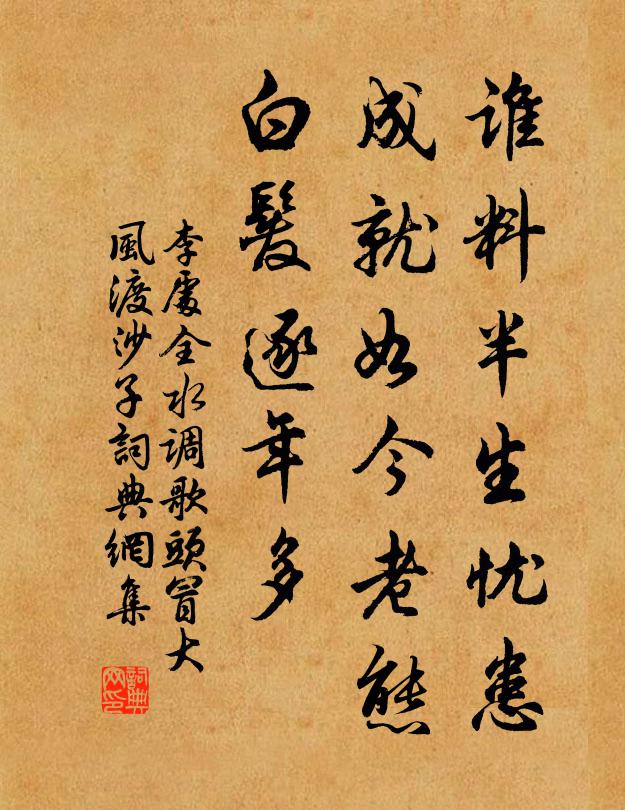 谁料半生忧患
成就如今老態
白髮逐年多
李處全水调歌頭冒大
風渡沙子詞典網集
詞典网印